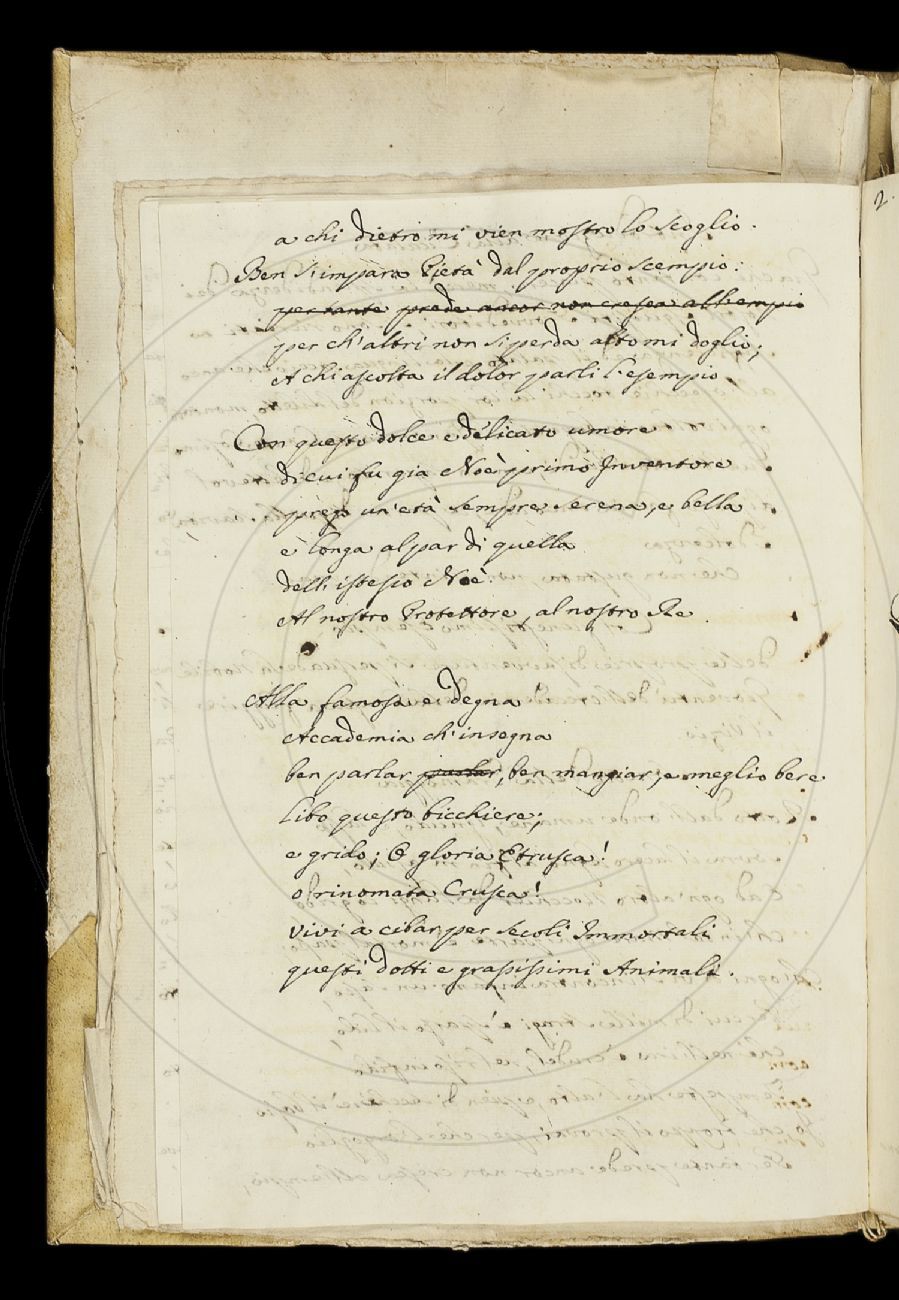 2.
a chi dietro mi vien mostro lo scoglio.
Ben s'impara Pietà dal proprio scempio:
per tante prede ancor non cresca all'empio
per ch'altri non si perda alto mi doglio;
A chi ascolta il dolor parli l'esempio
Con questo dolce e delicato umore
di cui fu gia Noè primo Inventore
prego un'età sempre serena, e bella
e longa al par di quella
dell'istesso Noè.
Al nostro Protettore, al nostro Re.
Alla famosa e degna
Accademia ch'insegna
ben parlar parlar, ben mangiar, e meglio bere
libo questo bicchiere;
e grido; O gloria Etrusca!
o rinomata Crusca!
vivi a cibar per secoli Immortali
questi dotti e grassissimi Animali.